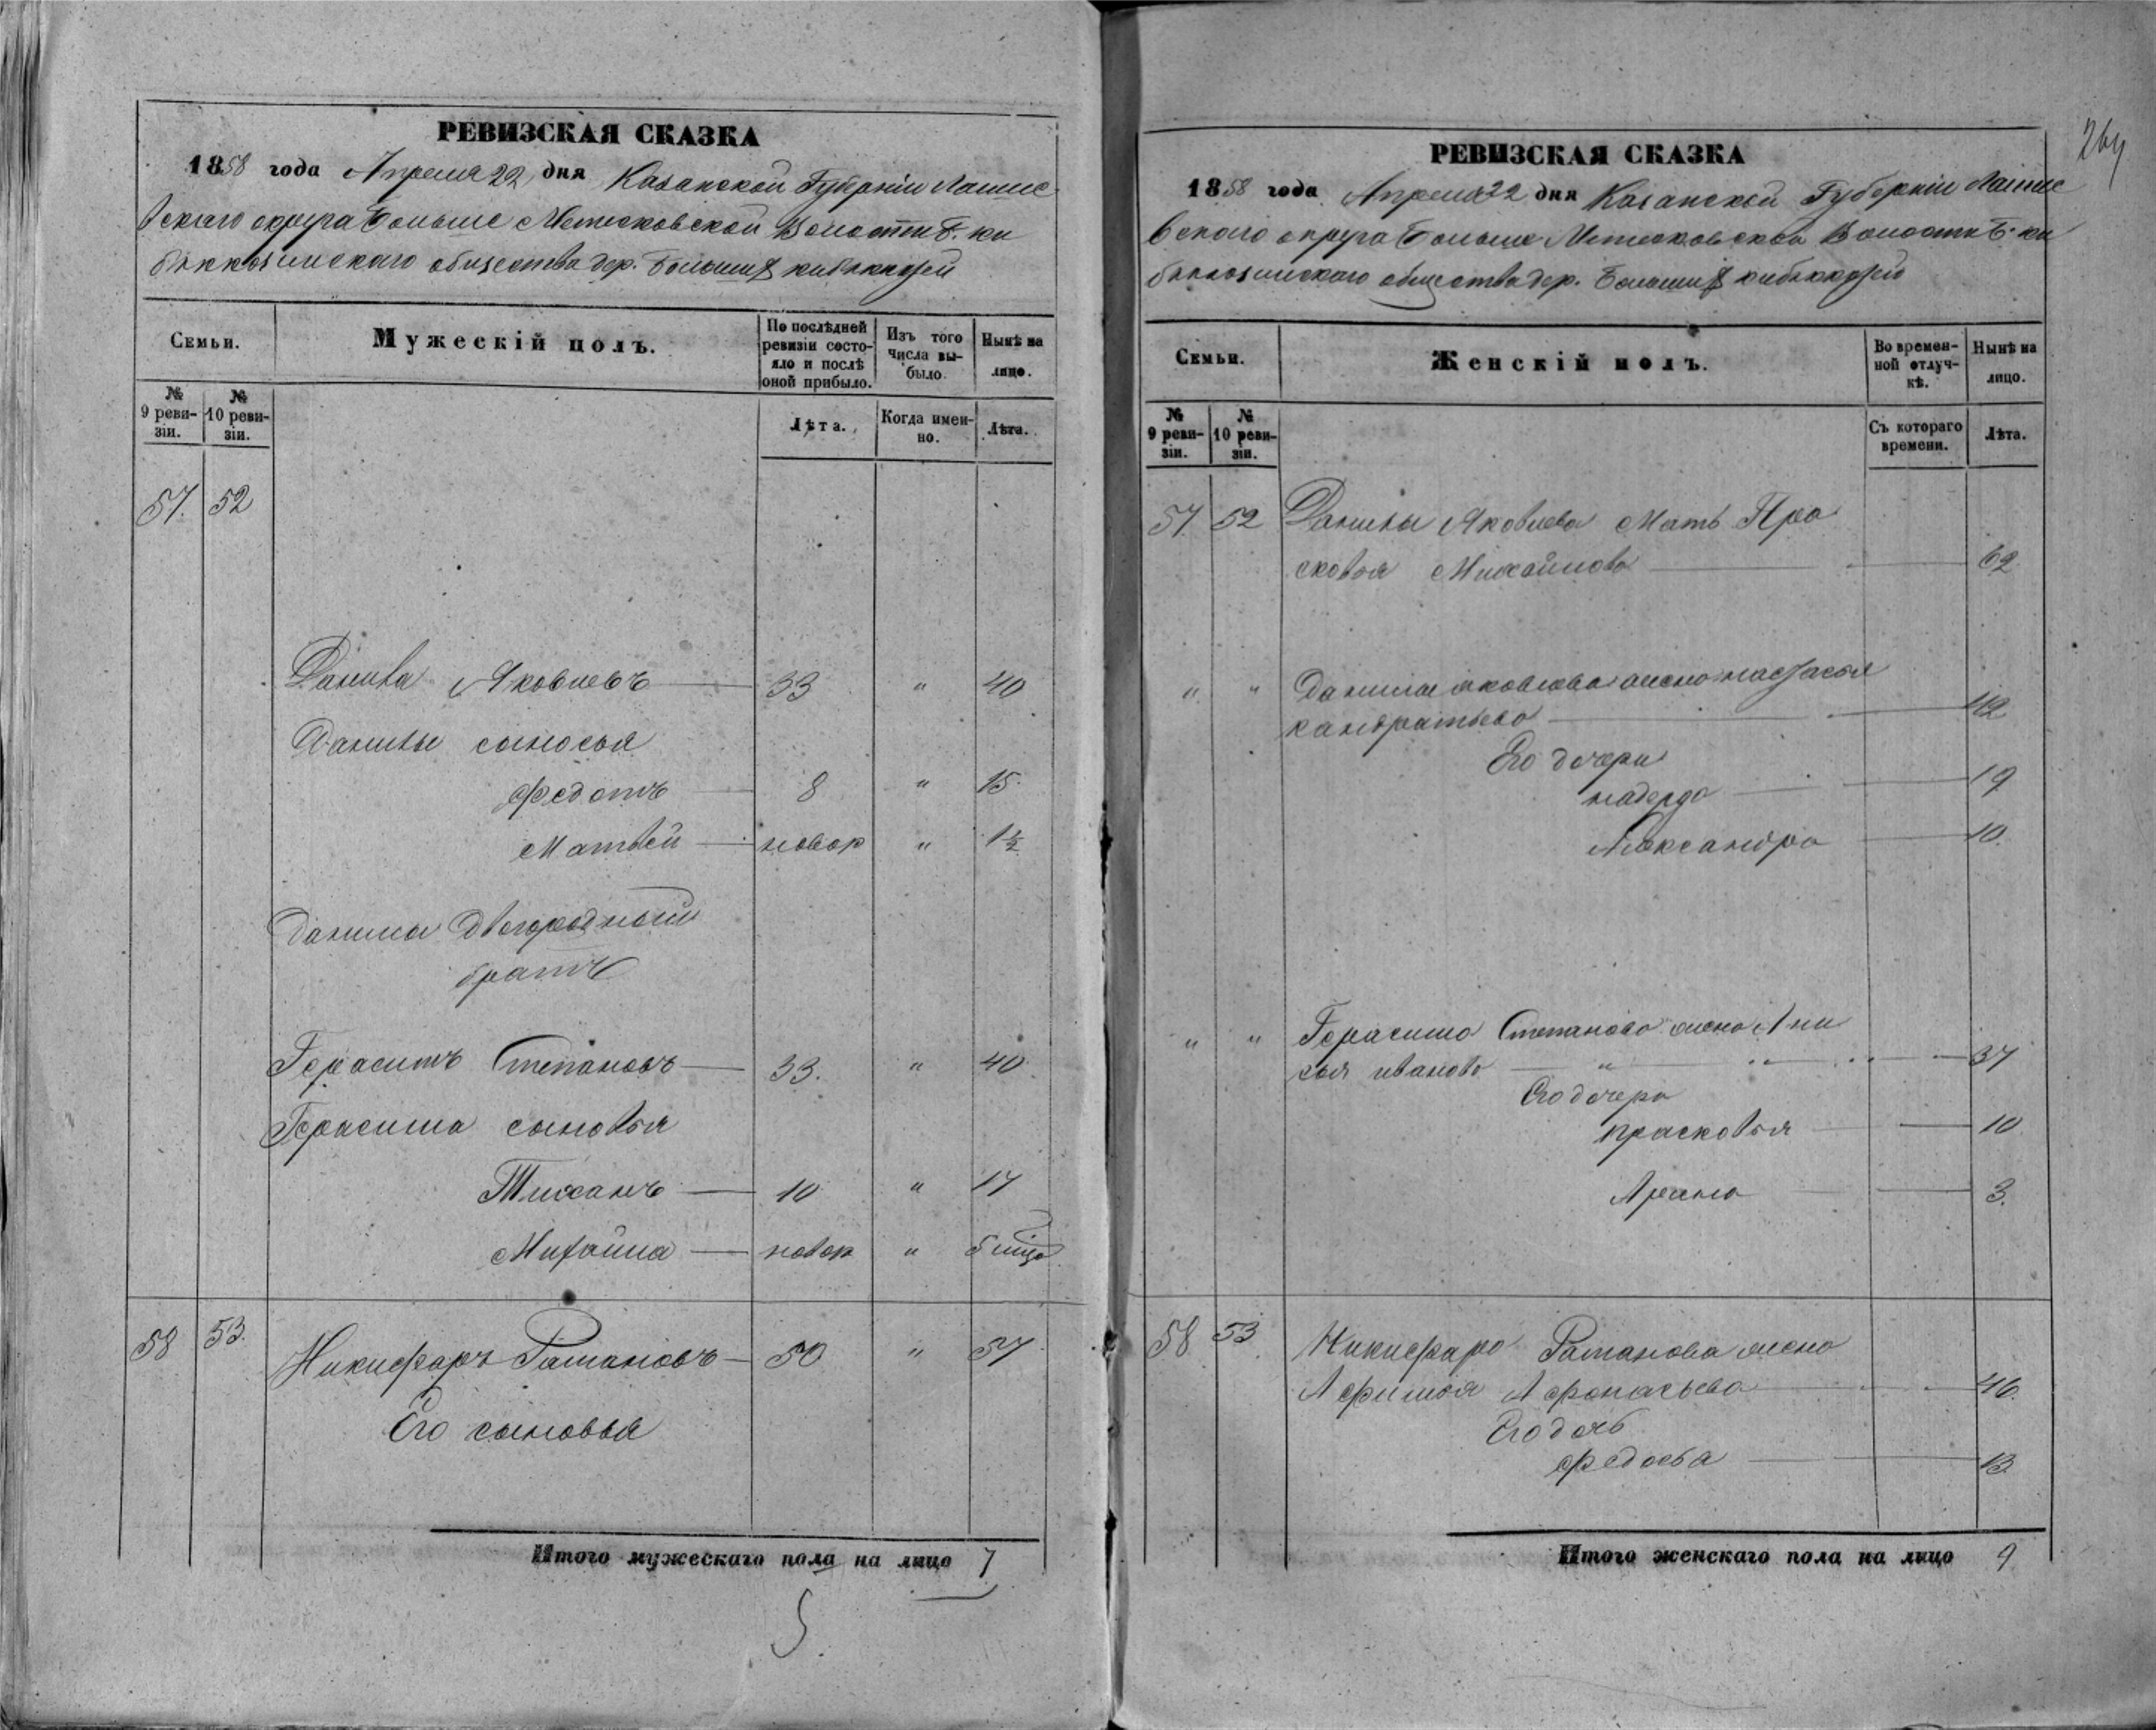 РЕВИЗСКАЯ СКАЗКА
1858 года Апреля 22 дня Казанской Губернии Лаише
вскаго округа Больше Метесковской Волости Б. ки
бяккозинскаго общества дер. Большихъ кибяккозей
Семьи.
Мужескій полъ.
По послѣдней ревизіи состояло и послѣ оной прибыло.
Изъ того числа выбыло.
Нынѣ на лицо.
№ 9 ревизіи.
№ 10 ревизіи.
Лѣта.
Когда именно.
Лѣта.
57. 52
Данила Яковлевъ 33 " 40
Данилы сыновья
Федотъ 8 " 15.
Матвей новор " 1½
Данилы двоюродный
братъ
Герасимъ Степановъ 33. " 40
Герасима сыновья
Тиханъ 10 " 17
Михайла новор "
58 53. Никифаръ Рамановъ 50 " 57
Его сыновья
Итого мужескаго пола на лицо 7
264
РЕВИЗСКАЯ СКАЗКА
1858 года Апреля 22 дня Казанской Губерніи Лаише
вскаго округа Больше Метесковской Волости Б. ки
бяккозинскаго общества дер. Большихъ кибяккозей
Семьи.
Женскій полъ.
Во временной отлучкѣ.
Нынѣ на лицо.
№ 9 ревизіи.
№ 10 ревизіи.
Съ котораго времени.
Лѣта.
57. 52 Данилы Яковлева Мать Пра
сковья Михайлова 62
" " Данилы яковлева жена настасья
кандратьева 42
Его дочери
надежда 19
Александра 10.
" " Герасима Степанова жена Ани
сья иванова " 37
Его дочери
прасковья 10
Арина 3.
58 53 Никифара Раманова жена
Афимья Афонасьева 46.
Его дочь
федосья 13
Итого женскаго пола на лицо 9